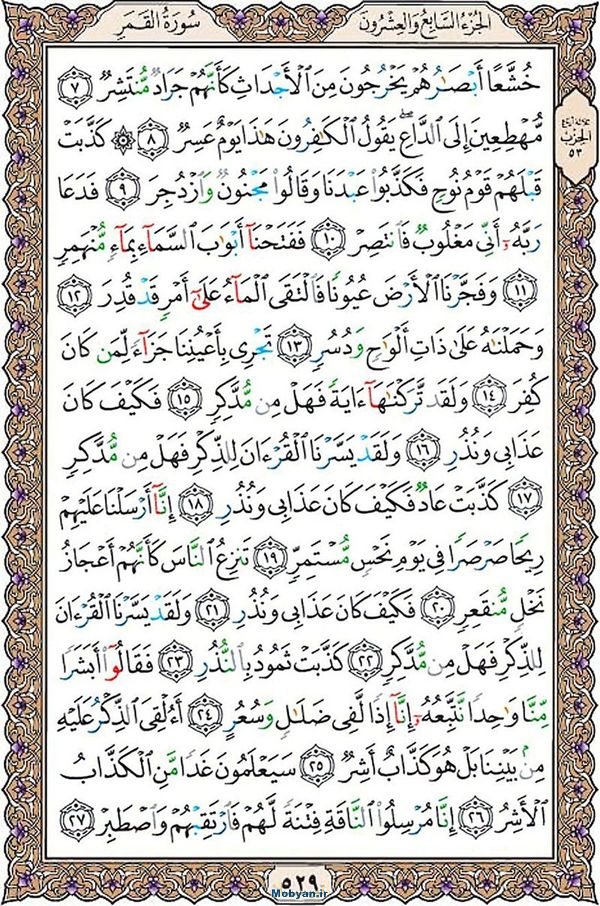 الجُزءُ السَّابِعُ وَالعِشْرُونَ سُورَةُ القَمَرِ
خُشَّعًا أَبْصَٰرُهُمْ يَخْرُجُونَ مِنَ ٱلْأَجْدَاثِ كَأَنَّهُمْ جَرَادٌ مُّنتَشِرٌ ٧
مُّهْطِعِينَ إِلَى ٱلدَّاعِ ۖ يَقُولُ ٱلْكَٰفِرُونَ هَٰذَا يَوْمٌ عَسِرٌ ٨ ۞ كَذَّبَتْ
الحِزْب
٥٣
قَبْلَهُمْ قَوْمُ نُوحٍ فَكَذَّبُوا۟ عَبْدَنَا وَقَالُوا۟ مَجْنُونٌ وَٱزْدُجِرَ ٩ فَدَعَا
رَبَّهُۥٓ أَنِّى مَغْلُوبٌ فَٱنتَصِرْ ١٠ فَفَتَحْنَآ أَبْوَٰبَ ٱلسَّمَآءِ بِمَآءٍ مُّنْهَمِرٍ
١١ وَفَجَّرْنَا ٱلْأَرْضَ عُيُونًا فَٱلْتَقَى ٱلْمَآءُ عَلَىٰٓ أَمْرٍ قَدْ قُدِرَ ١٢
وَحَمَلْنَٰهُ عَلَىٰ ذَاتِ أَلْوَٰحٍ وَدُسُرٍ ١٣ تَجْرِى بِأَعْيُنِنَا جَزَآءً لِّمَن كَانَ
كُفِرَ ١٤ وَلَقَد تَّرَكْنَٰهَآ ءَايَةً فَهَلْ مِن مُّدَّكِرٍ ١٥ فَكَيْفَ كَانَ
عَذَابِى وَنُذُرِ ١٦ وَلَقَدْ يَسَّرْنَا ٱلْقُرْءَانَ لِلذِّكْرِ فَهَلْ مِن مُّدَّكِرٍ
١٧ كَذَّبَتْ عَادٌ فَكَيْفَ كَانَ عَذَابِى وَنُذُرِ ١٨ إِنَّآ أَرْسَلْنَا عَلَيْهِمْ
رِيحًا صَرْصَرًا فِى يَوْمِ نَحْسٍ مُّسْتَمِرٍّ ١٩ تَنزِعُ ٱلنَّاسَ كَأَنَّهُمْ أَعْجَازُ
نَخْلٍ مُّنقَعِرٍ ٢٠ فَكَيْفَ كَانَ عَذَابِى وَنُذُرِ ٢١ وَلَقَدْ يَسَّرْنَا ٱلْقُرْءَانَ
لِلذِّكْرِ فَهَلْ مِن مُّدَّكِرٍ ٢٢ كَذَّبَتْ ثَمُودُ بِٱلنُّذُرِ ٢٣ فَقَالُوٓا۟ أَبَشَرًا
مِّنَّا وَٰحِدًا نَّتَّبِعُهُۥٓ إِنَّآ إِذًا لَّفِى ضَلَٰلٍ وَسُعُرٍ ٢٤ أَءُلْقِىَ ٱلذِّكْرُ عَلَيْهِ
مِنۢ بَيْنِنَا بَلْ هُوَ كَذَّابٌ أَشِرٌ ٢٥ سَيَعْلَمُونَ غَدًا مَّنِ ٱلْكَذَّابُ
ٱلْأَشِرُ ٢٦ إِنَّا مُرْسِلُوا۟ ٱلنَّاقَةِ فِتْنَةً لَّهُمْ فَٱرْتَقِبْهُمْ وَٱصْطَبِرْ ٢٧
٥٢٩
Mobyan.ir